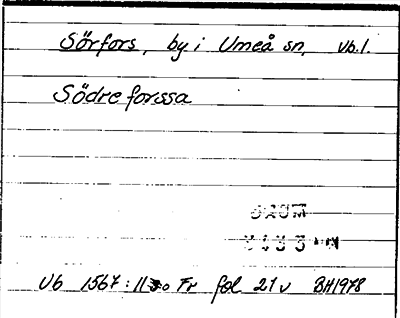 Sörfors, by i Umeå sn, Vb.l.
Södre forssa
DAUM
Vb 1567: Fr fol 21 v BH1978